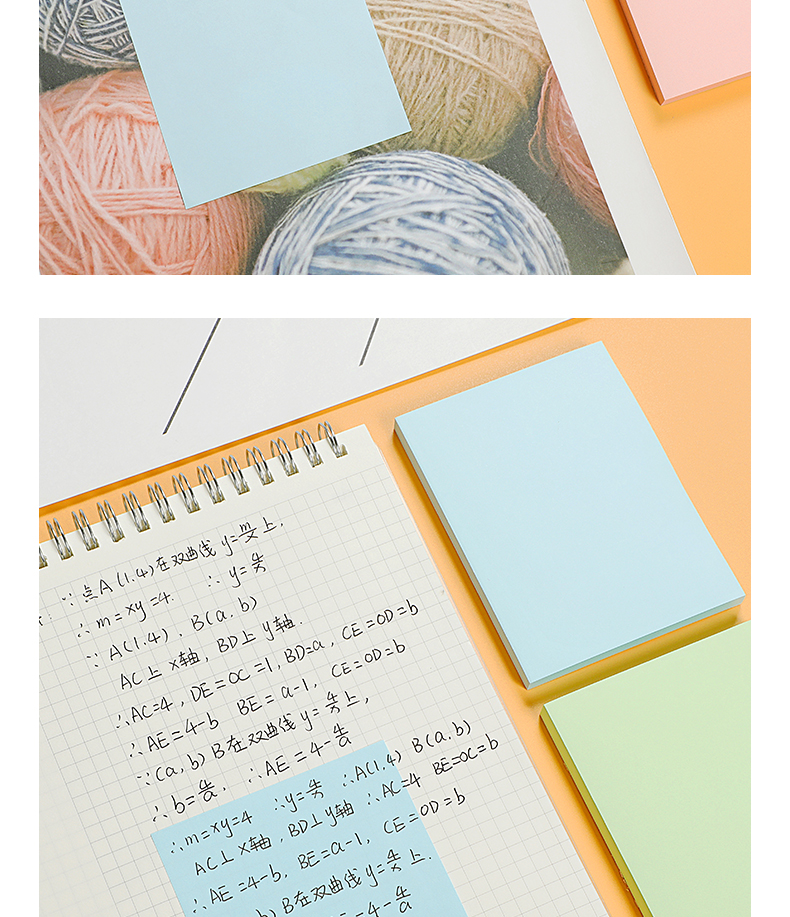 ∵点A(1.4)在双曲线 y=m/x上,
∴m=xy=4. ∴y=4/x
∵A(1.4). B(a.b)
AC⊥x轴, BD⊥y轴.
∴AC=4, DE=OC=1, BD=a, CE=OD=b
∴AE=4-b BE=a-1, CE=OD=b
∵(a,b)B在双曲线 y=4/x上,
∴b=4/a, ∴AE=4-4/a
∴m=xy=4 ∴y=4/x ∴A(1.4) B(a.b)
AC⊥x轴, BD⊥y轴 ∴AC=4 BE=OC=b
∴AE=4-b, BE=a-1, CE=OD=b
b)B在双曲线 y=4/x上.
=4-4/a